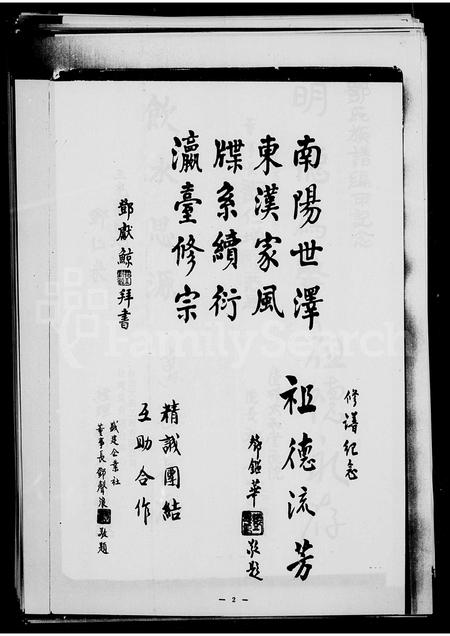 南陽世澤
東漢家風
牒系續衍
瀛臺修宗
鄧獻鯨拜書
修譜紀念
祖德流芳
鄧鎰華
敬題
精誠團結
互助合作
盛建企業社
董事長鄧聲浪
敬題
- 2 -
FamilySearch